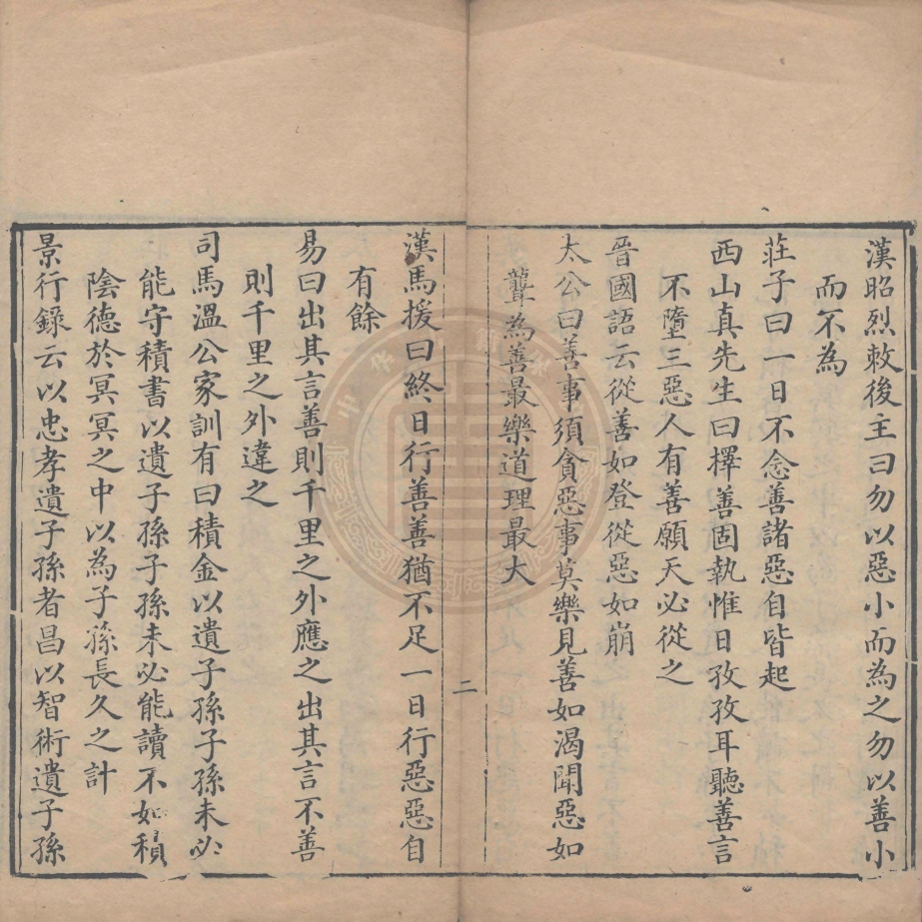 漢昭烈敕後主曰勿以惡小而為之勿以善小
而不為
莊子曰一日不念善諸惡自皆起
西山真先生曰擇善固執惟日孜孜耳聽善言
不墮三惡人有善願天必從之
晉國語云從善如登從惡如崩
太公曰善事須貪惡事莫樂見善如渴聞惡如
聾為善最樂道理最大
二
漢馬援曰終日行善善猶不足一日行惡惡自
有餘
易曰出其言善則千里之外應之出其言不善
則千里之外違之
司馬溫公家訓有曰積金以遺子孫子孫未必
能守積書以遺子孫子孫未必能讀不如積
陰德於冥冥之中以為子孫長久之計
景行錄云以忠孝遺子孫者昌以智術遺子孫